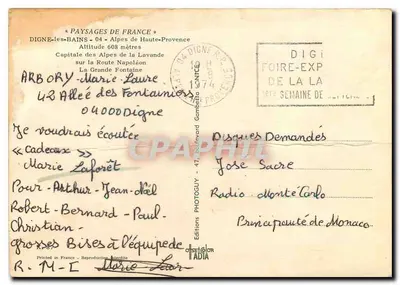 « PAYSAGES DE FRANCE »
DIGNE-les-BAINS - 04 - Alpes de Haute-Provence
Altitude 608 mètres
Capitale des Alpes de la Lavande
sur la Route Napoléon
La Grande Fontaine
ARBORY-Marie-Laure.
42 Allée des Fontainiers
04000 Digne
Je voudrais écoutée
« Cadeaux »
Marie Laforêt
Pour-Arthur-Jean-Noël
Robert-Bernard-Paul-
Christian-
grosses Bises à l'équipe de
R-M-C Marie Laure
Printed in France -
Editions PHOTOGUY - 47, Boulevard Gambetta
04 DIGNE R.P.
1974
DIGI
FOIRE-EXP
DE LA LA
SEMAINE DE
Disques Demandés
José Sacre
Radio Monte Carlo
Principauté de Monaco
IADIA
PHOTO CPA.com